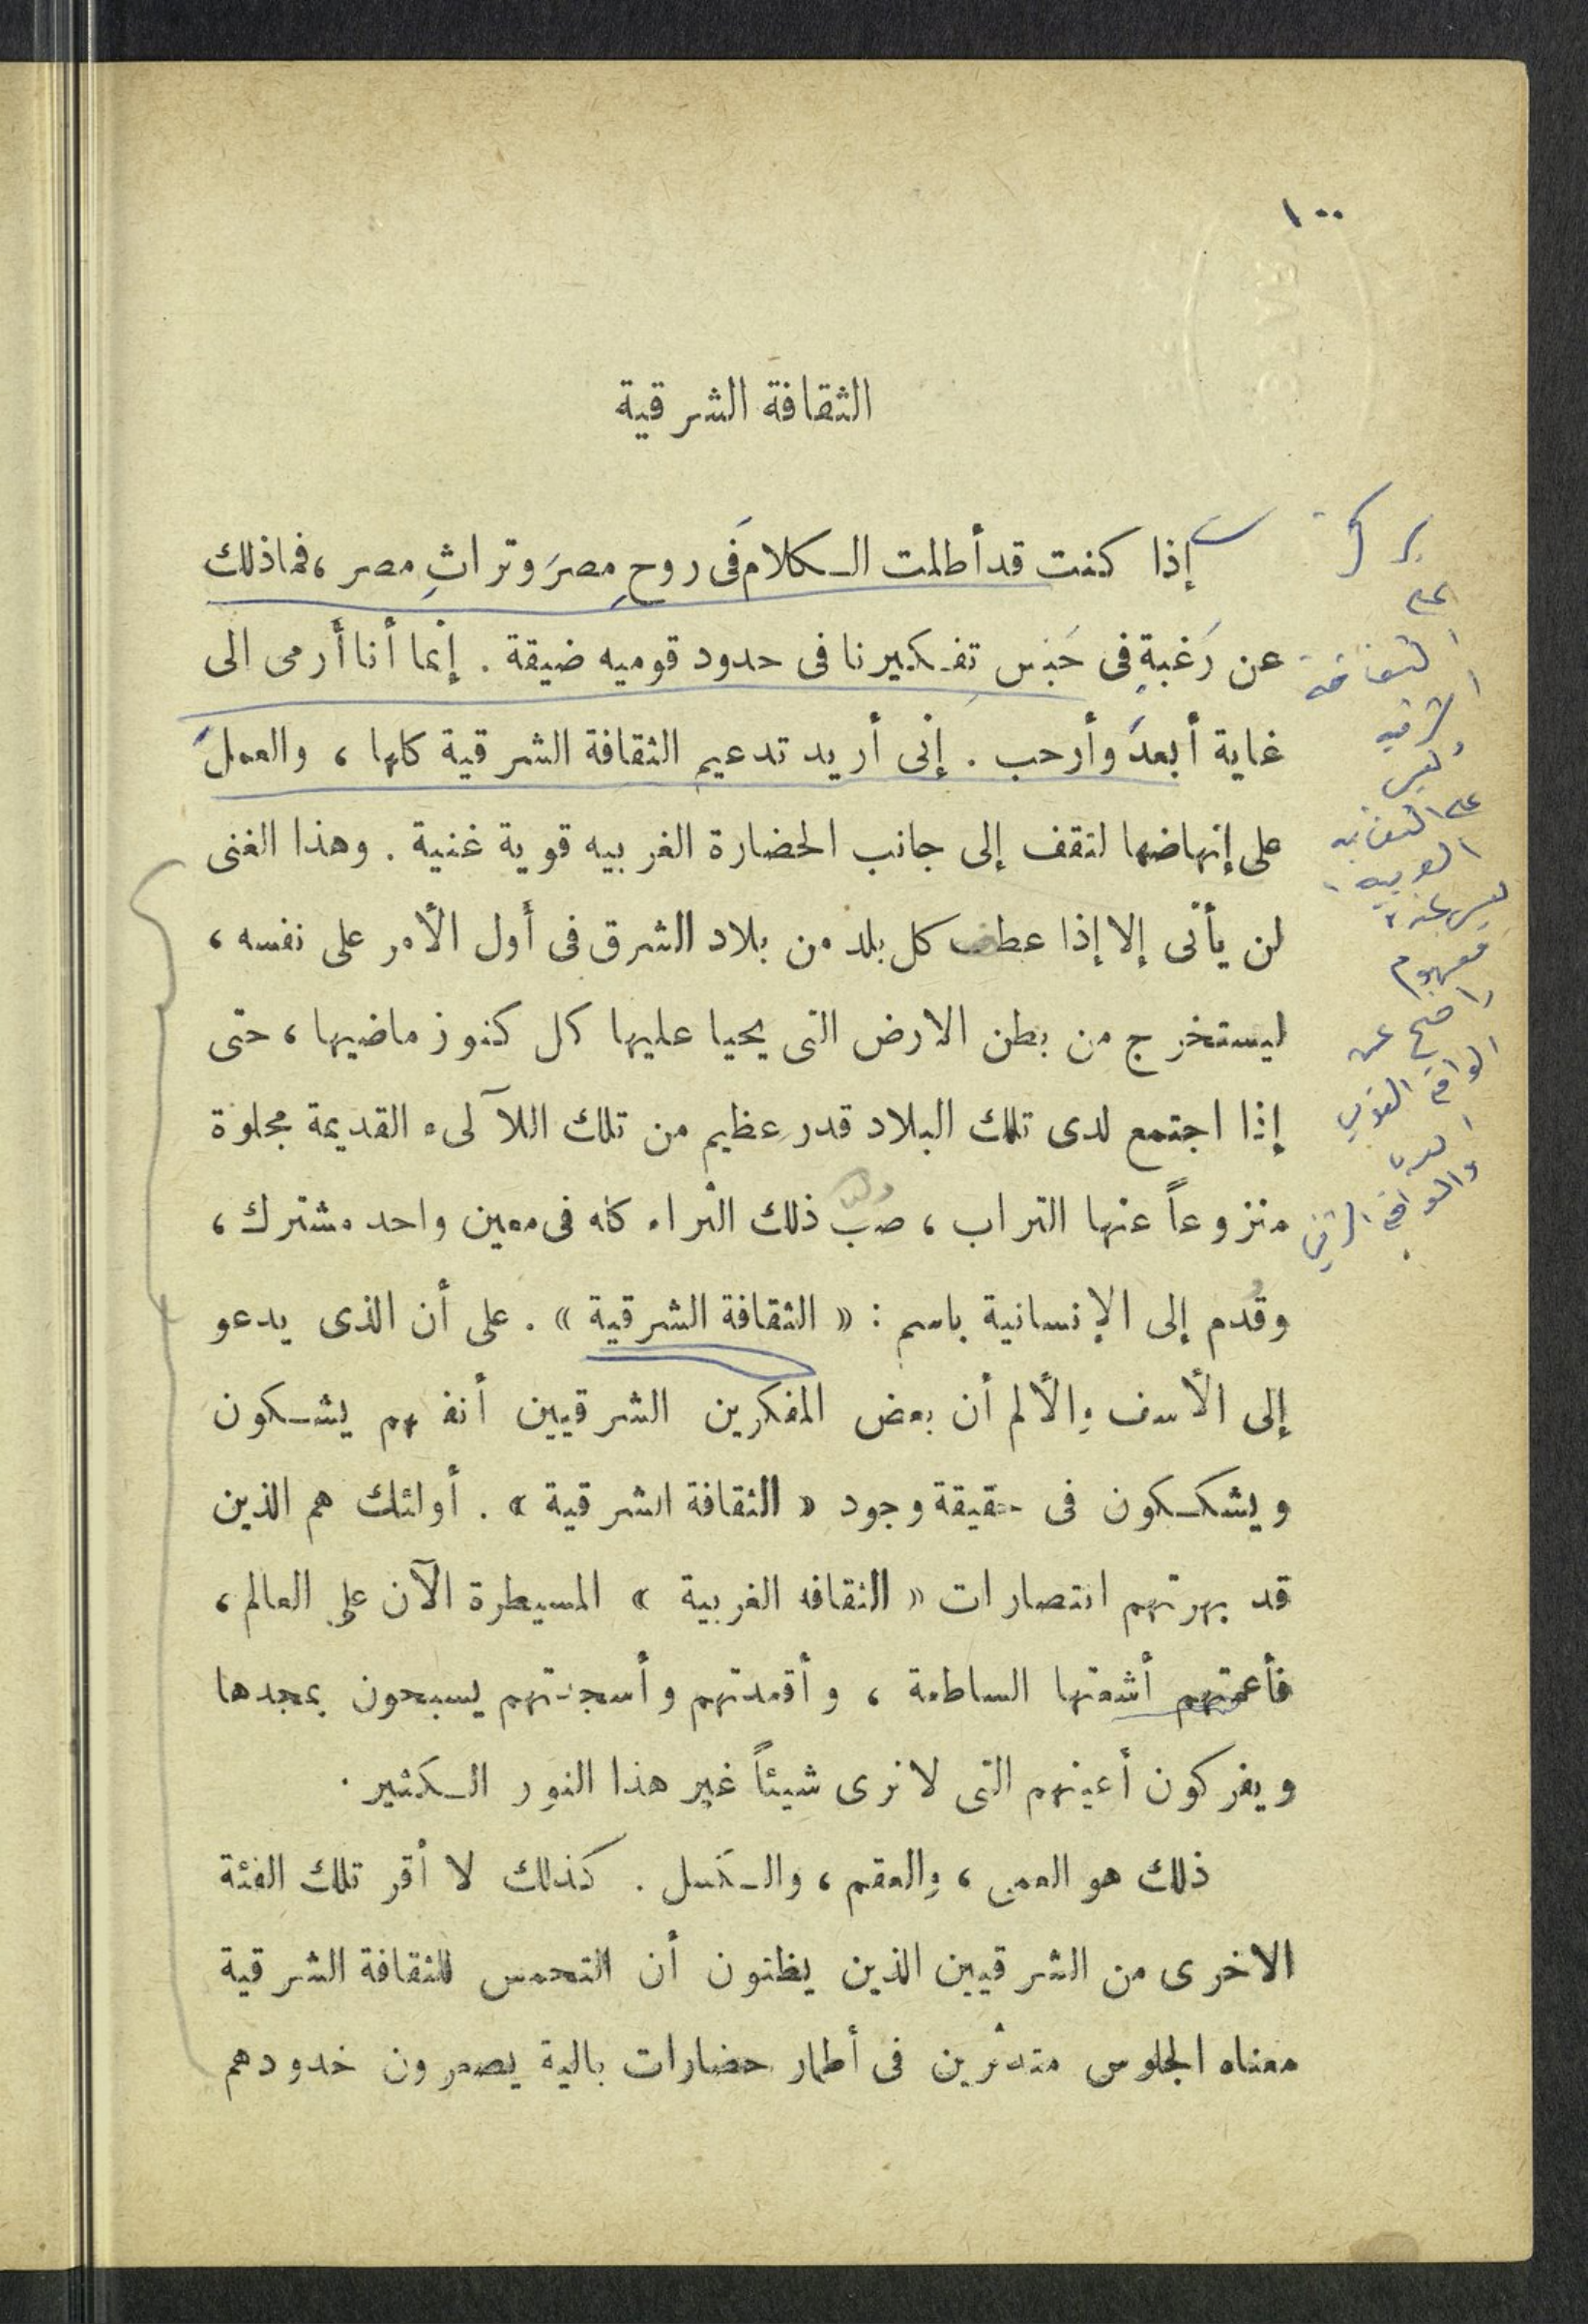 ١٠٠
الثقافة الشرقية
إذا كنت قد أطلت الكلام فى روحِ مصرَ وتراثِ مصر ، فما ذلك
عن رَغبةٍ فى حَبْس تفكيرنا فى حدود قوميه ضيقة . إنما أنا أرمى الى
غاية أبعدَ وأرحب . إنى أريد تدعيم الثقافة الشرقية كلها ، والعملَ
على إنهاضها لتقف إلى جانب الحضارة الغربيه قوية غنية . وهذا الغنى
لن يأتى إلا إذا عطف كل بلد من بلاد الشرق فى أول الأمر على نفسه ،
ليستخرج من بطن الارض التى يحيا عليها كل كنوز ماضيها ، حتى
إذا اجتمع لدى تلك البلاد قدر عظيم من تلك اللآلىء القديمة مجلوة
منزوعاً عنها التراب ، صُبَّ ذلك الثراء كله فى معين واحد مشترك ،
وقُدم إلى الإنسانية باسم : « الثقافة الشرقية » . على أن الذى يدعو
إلى الأسف والألم أن بعض المفكرين الشرقيين أنفسهم يشكون
ويشككون فى حقيقة وجود « الثقافة الشرقية » . أولئك هم الذين
قد بهرتهم انتصارات « الثقافه الغربية » المسيطرة الآن على العالم ،
فأعمتهم أشعتها الساطعة ، وأقعدتهم وأسجدتهم يسبحون بمجدها
ويفركون أعينهم التى لا نرى شيئاً غير هذا النور الكثير .
ذلك هو العمى ، والعقم ، والكسل . كذلك لا أقر تلك الفئة
الاخرى من الشرقيين الذين يظنون أن التحمس للثقافة الشرقية
معناه الجلوس متدثرين فى أطمار حضارات بالية يصعرون خدودهم
يركز
على
الثقافة
الشرقيه
وليس
على الثقافه
العربيه
ليس عنده
مفهوم
واضح عن
الواقع القومي
والواقع الشرقي